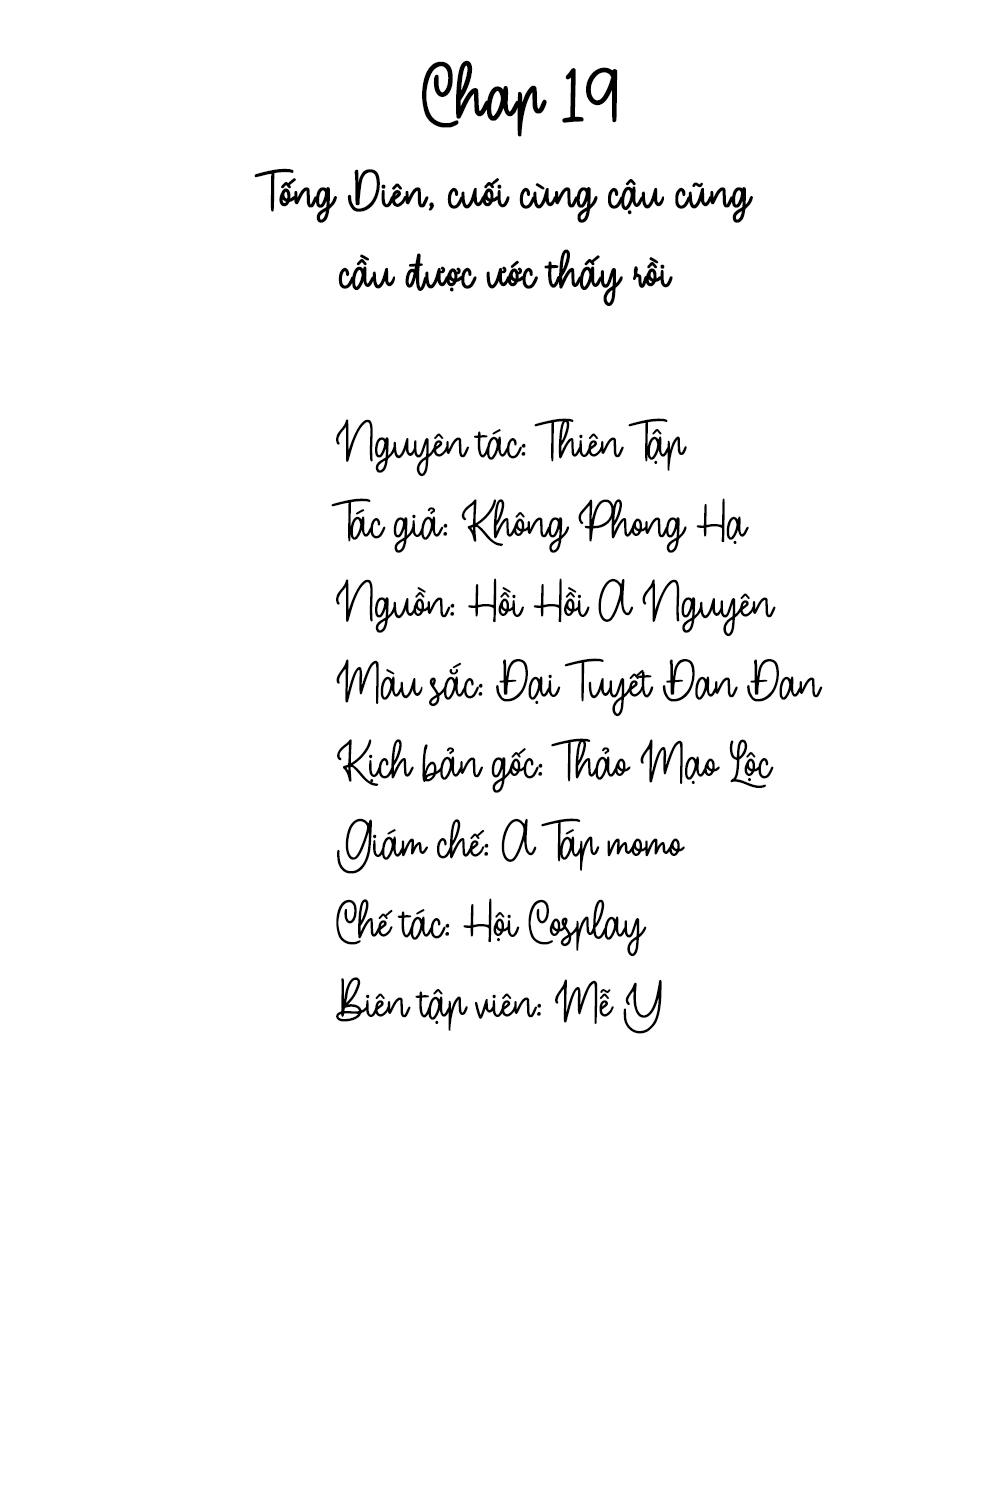 Chap 19
Tống Diên, cuối cùng cậu cũng
cầu được ước thấy rồi
Nguyên tác: Thiên Tập
Tác giả: Không Phong Hạ
Nguồn: Hồi Hồi A Nguyên
Màu sắc: Đại Tuyết Đan Đan
Kịch bản gốc: Thảo Mạo Lộc
Giám chế: A Táp momo
Chế tác: Hội Cosplay
Biên tập viên: Mễ Y